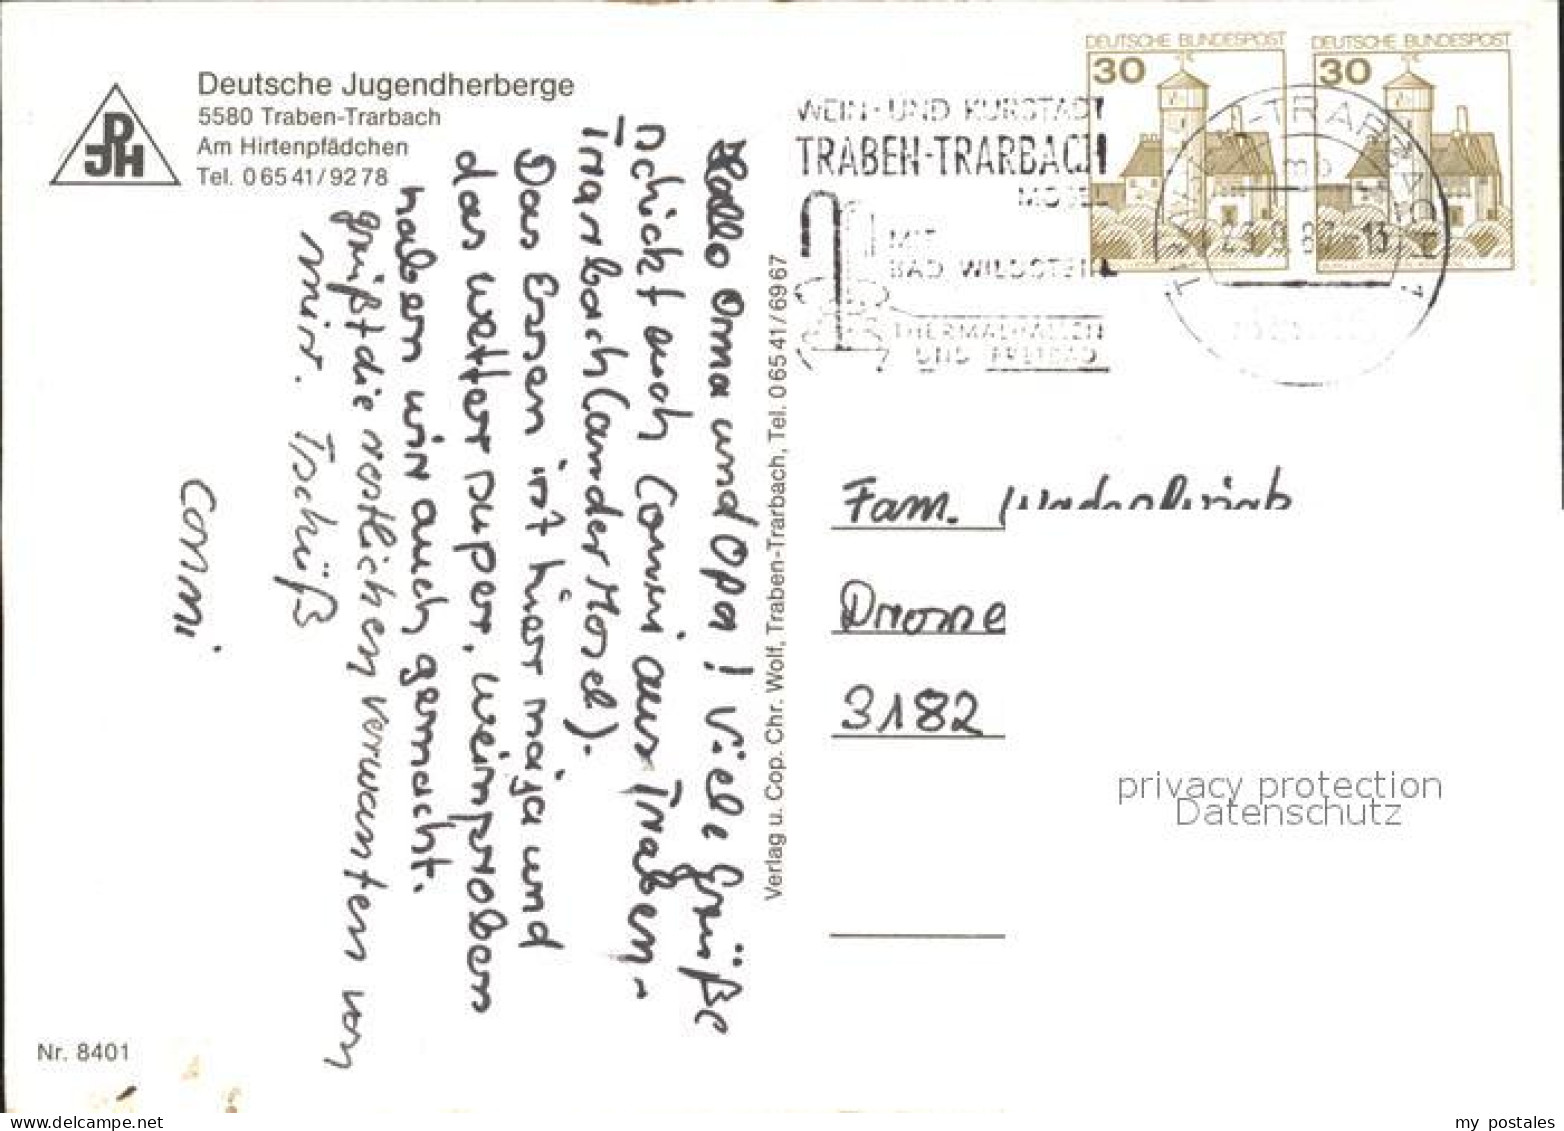 DJH
Deutsche Jugendherberge
5580 Traben-Trarbach
Am Hirtenpfädchen
Tel. 0 65 41 / 92 78
Hallo Oma und Opa! Viele Grüße
schickt euch Conni aus Traben-
Trarbach (an der Mosel).
Das Essen ist hier naja und
das Wetter super, weinproben
haben wir auch gemacht.
grüßt die restlichen verwanten von
mir. Tschüß
Conni
Nr. 8401
Verlag u. Cop. Chr. Wolf, Traben-Trarbach, Tel. 0 65 41 / 69 67
WEIN- UND KURSTADT
TRABEN-TRARBACH
MOSEL
MIT
BAD WILDSTEIN
THERMALHALLEN
UND FREIBAD
DEUTSCHE BUNDESPOST
30
DEUTSCHE BUNDESPOST
30
Fam.
Drome
3182
privacy protection
Datenschutz
my postales